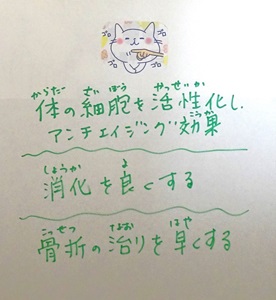 ゴロ ゴロ
からだ さいぼう かっせいか
体の細胞を活性化し、
アンチエイジング効果
こうか
しょうか よ
消化を良くする
こっせつ なお はや
骨折の治りを早くする